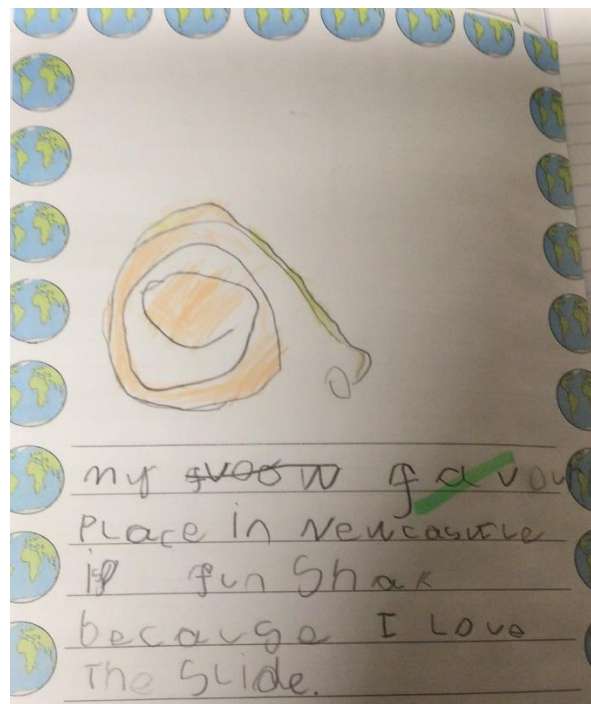 my favou
Place in Newcastle
is fun Shak
because I Love
The Slide.